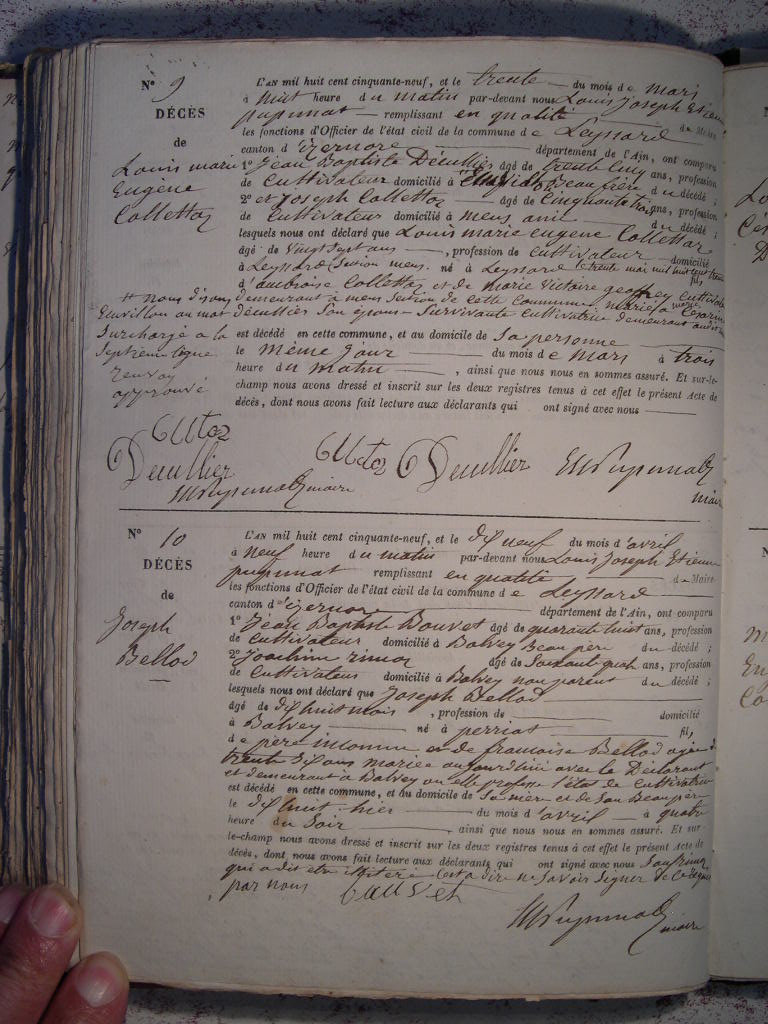 N° 9
DÉCÈS
de
Louis marie
Eugène
Collettaz
L'AN mil huit cent cinquante-neuf, et le trente du mois de Mars
à huit heure du matin par-devant nous Louis Joseph Etienne
pupunat remplissant en qualité de Maire
les fonctions d'Officier de l'état civil de la commune de Leyssard
canton d'izernore département de l'Ain, ont comparu
1° Jean Baptiste Décullier âgé de trente cinq ans, profession
de Cultivateur domicilié à Beau frère du décédé ;
2° et Joseph Collettaz âgé de Cinquante trois ans, profession
de Cultivateur domicilié à mens ami du décédé ;
lesquels nous ont déclaré que Louis marie eugene Collettaz
âgé de vingt sept ans, profession de Cultivateur domicilié
à Leyssard Section mens. né à Leyssard le trente mai mil huit cent trente
fils
d'ambroise Collettaz et de marie victoire geoffrey Cultivateurs
demeurant à mens Section de cette Commune, marié à
décullier Son épouse Survivante Cultivatrice demeurant audit
# nous disons
au mot
Surchargé a la
Septième ligne
renvoy
approuvé
est décédé en cette commune, et au domicile de Sa personne
le même jour du mois de Mars à trois
heure du matin, ainsi que nous nous en sommes assuré. Et sur-le-
champ nous avons dressé et inscrit sur les deux registres tenus à cet effet le présent Acte de
décès, dont nous avons fait lecture aux déclarants qui ont signé avec nous
Decullier
Decullier
maire
maire
N° 10
DÉCÈS
de
Joseph
Bellod
L'AN mil huit cent cinquante-neuf, et le dix neuf du mois d'avril
à neuf heure du matin par-devant nous Louis Joseph Etienne
pupunat remplissant en qualité de Maire
les fonctions d'Officier de l'état civil de la commune de Leyssard
canton d'izernore département de l'Ain, ont comparu
1° Jean Baptiste Bouvet âgé de quarante huit ans, profession
de Cultivateur domicilié à Balvey Beau père du décédé ;
2° Joachim rimoz âgé de Soixante quatre ans, profession
de Cultivateur domicilié à Balvey non parent du décédé ;
lesquels nous ont déclaré que Joseph Bellod
âgé de dix huit mois, profession de domicilié
à Balvey né à perriat fils
de père inconnu et de francoise Bellod agée de
trente dix ans mariée aujourdhui avec le Déclarant
et demeurant à Balvey ou elle professe l'état de Cultivatrice
est décédé en cette commune, et au domicile de Sa mère et de Son Beau père
le dix huit hier du mois d'avril à quatre
heure du Soir, ainsi que nous nous en sommes assuré. Et sur
le-champ nous avons dressé et inscrit sur les deux registres tenus à cet effet le présent Acte de
décès, dont nous avons fait lecture aux déclarants qui ont signé avec nous Sauf rimoz
qui a dit etre illitéré C'est à dire ne Savoir Signer de ce requis
par nous
Bauvet
maire